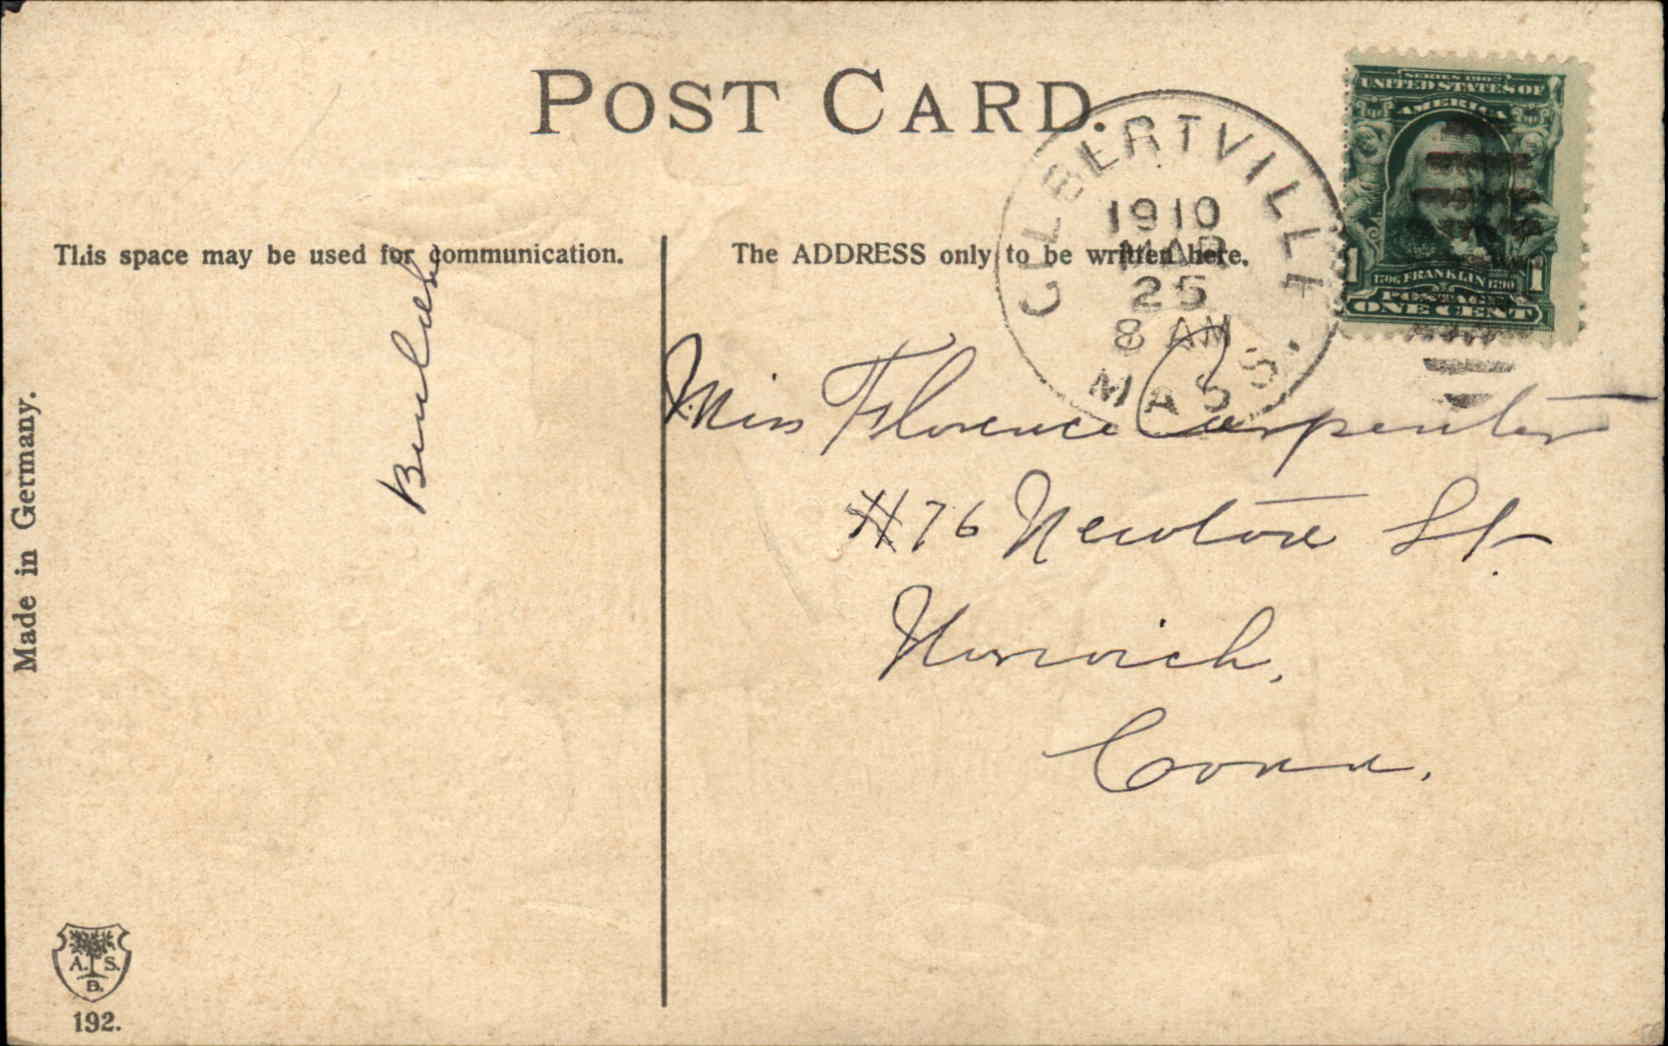 POST CARD.
GILBERTVILLE
1910
MAR
25
8 AM
MASS.
SERIES 1902
UNITED STATES OF
AMERICA
1706 FRANKLIN 1790
1 1
POSTAGE
ONE CENT
This space may be used for communication.
The ADDRESS only to be written here.
Beulah
Miss Florence Carpenter
#76 Newton St.
Norwich,
Conn.
Made in Germany.
A. S.
B.
192.